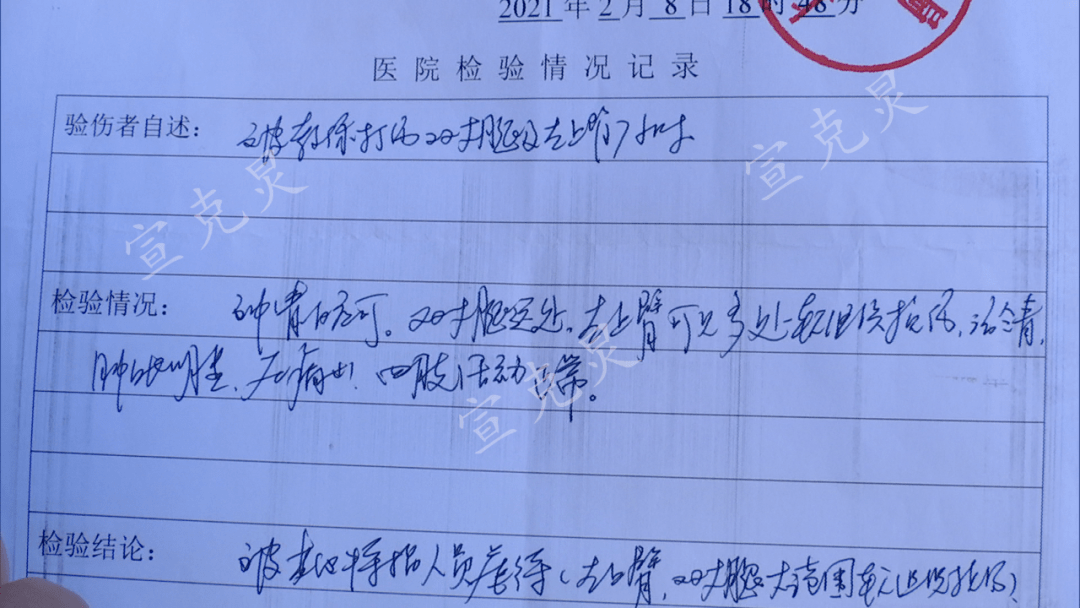 2021年2月8日18时48分
医院检验情况记录
验伤者自述：被教练打伤双大腿及左上臂
宣克炅
宣克炅
检验情况：神清。双大腿、左上臂可见多处软组织挫伤，淤青，
肿胀明显，四肢活动正常。
宣克炅
检验结论：被人员虐待（左上臂，双大腿大范围软组织挫伤）